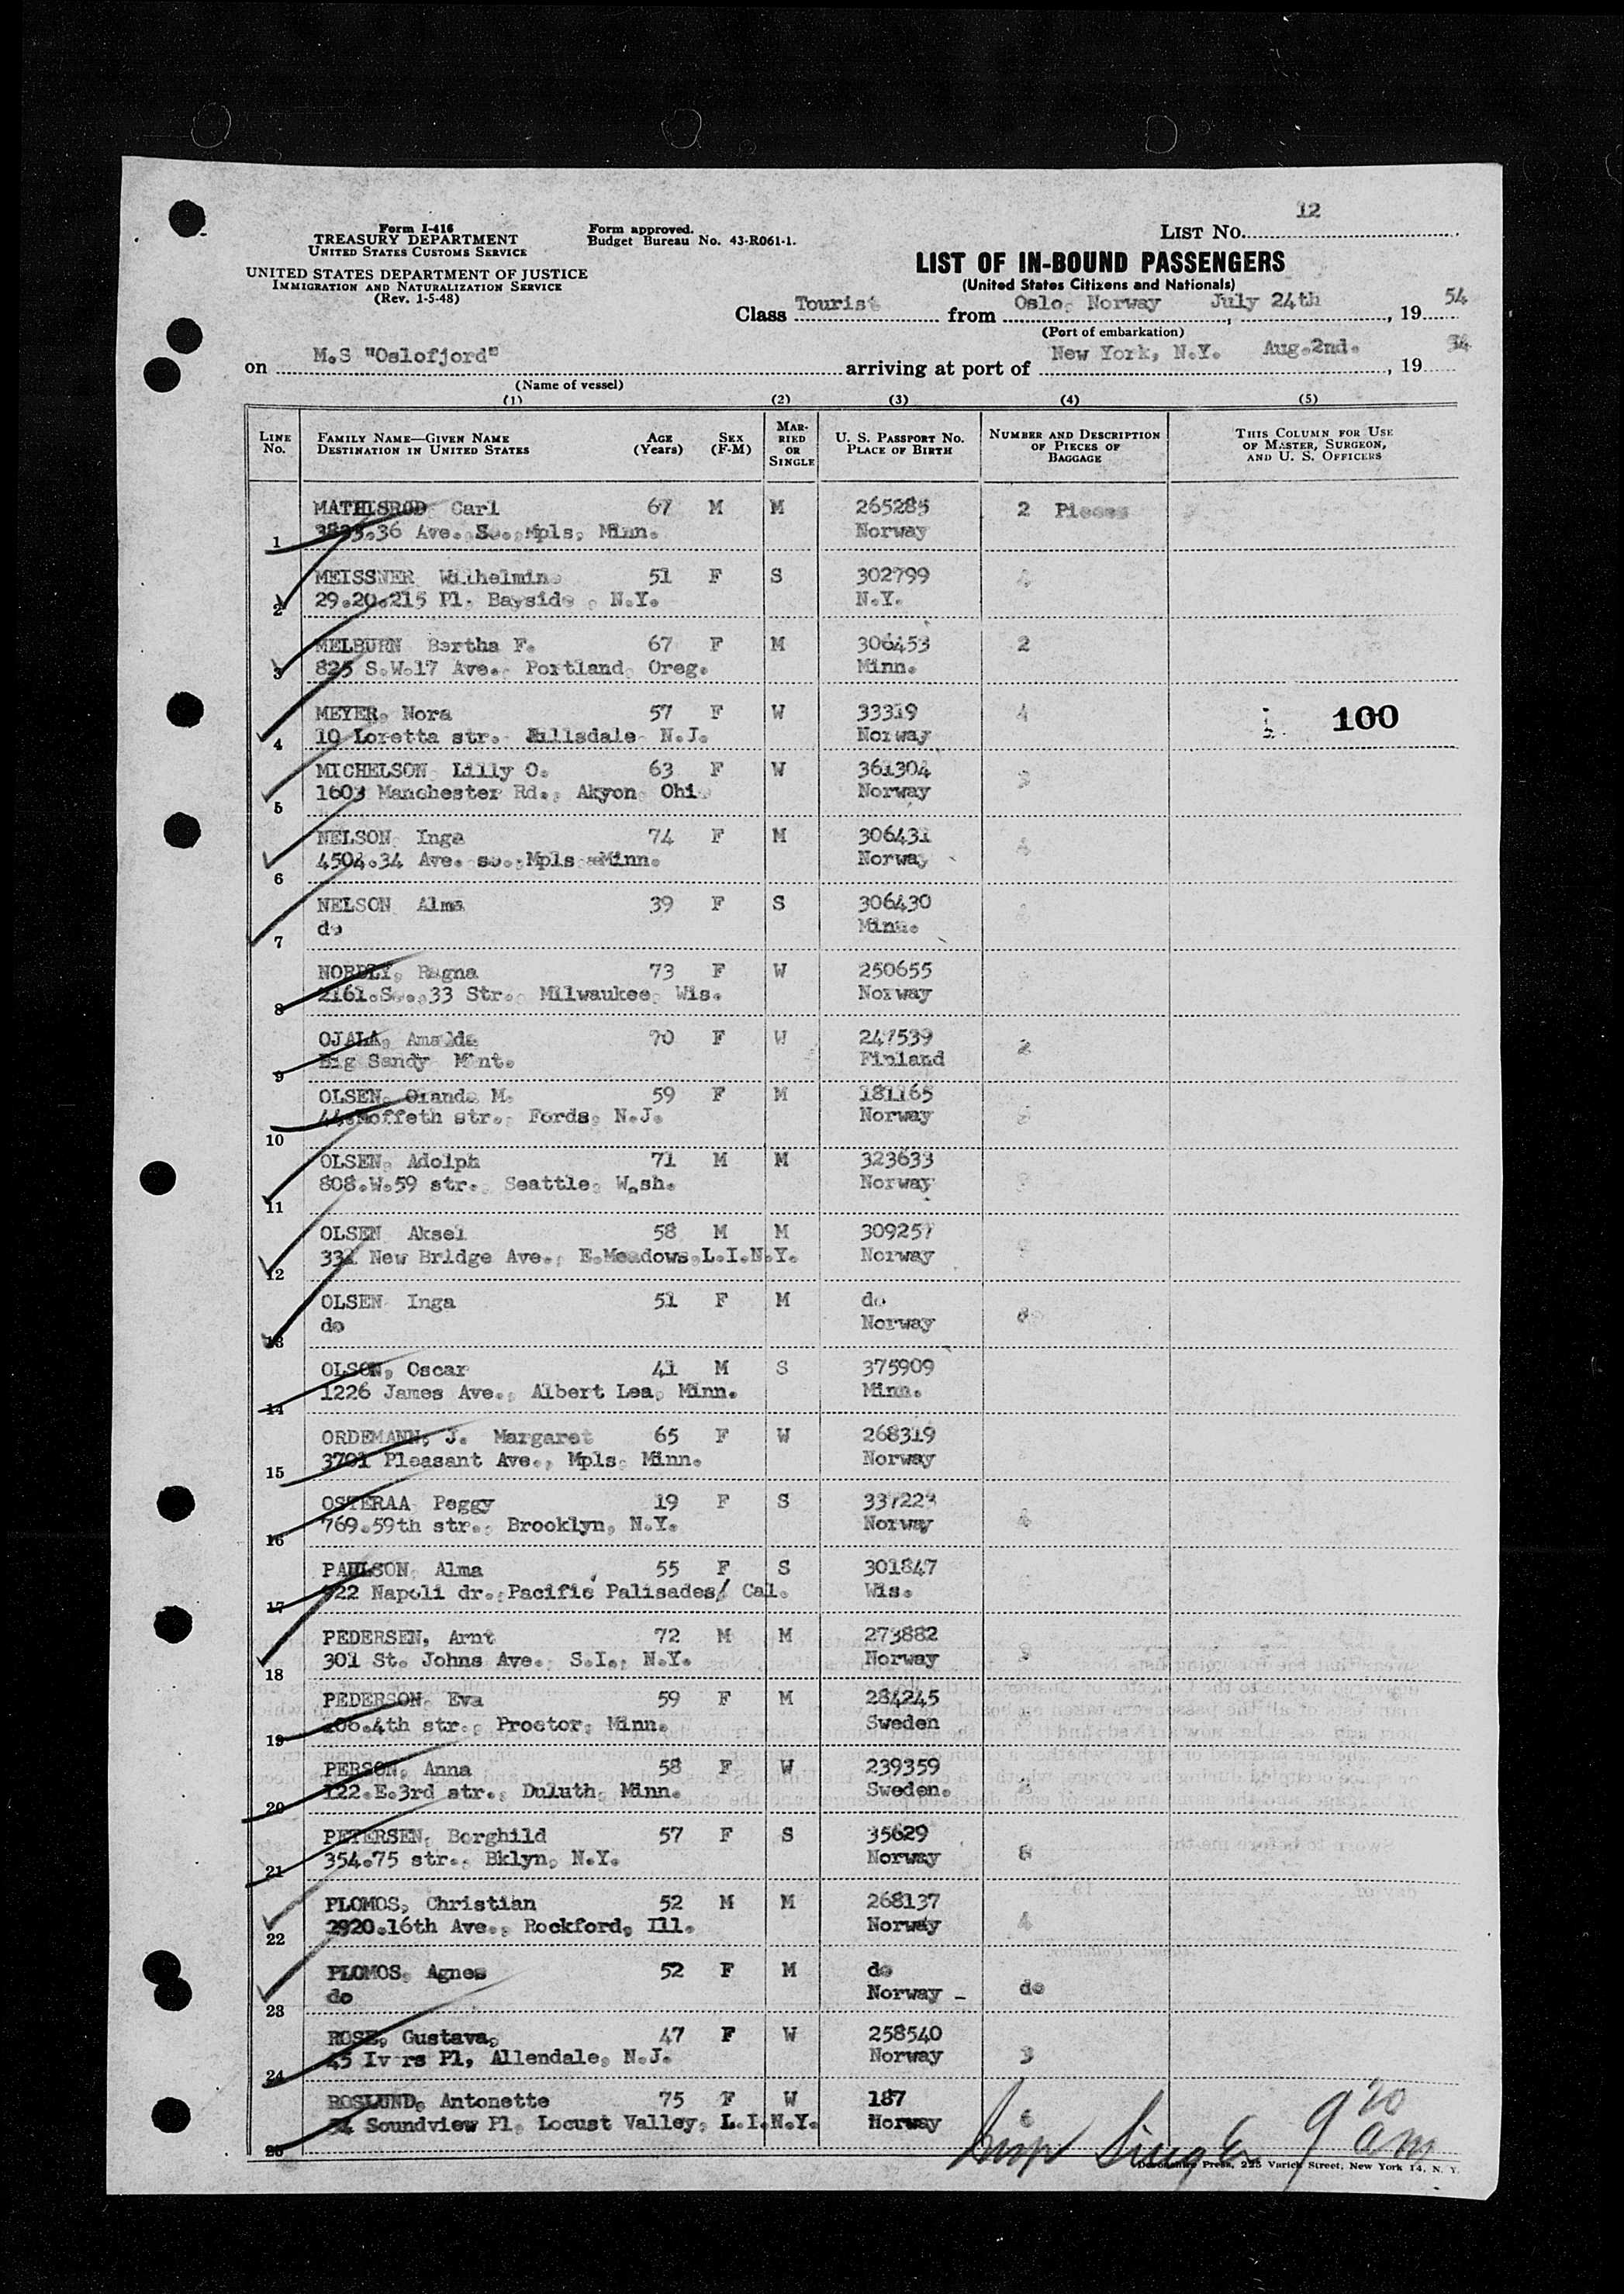 12
Form I-416
TREASURY DEPARTMENT
UNITED STATES CUSTOMS SERVICE
UNITED STATES DEPARTMENT OF JUSTICE
IMMIGRATION AND NATURALIZATION SERVICE
(Rev. 1-5-48)
Form approved.
Budget Bureau No. 43-R061-1.
LIST NO.
LIST OF IN-BOUND PASSENGERS
(United States Citizens and Nationals)
Class Tourist from Oslo, Norway July 24th, 19 54
(Port of embarkation)
on M.S "Oslofjord" arriving at port of New York, N.Y. Aug.2nd., 19
(Name of vessel)
(1) (2) (3) (4) (5)
LINE NO. FAMILY NAME—GIVEN NAME DESTINATION IN UNITED STATES AGE (Years) SEX (F-M) MARRIED OR SINGLE U. S. PASSPORT NO. PLACE OF BIRTH NUMBER AND DESCRIPTION OF PIECES OF BAGGAGE THIS COLUMN FOR USE OF MASTER, SURGEON, AND U. S. OFFICERS
Carl 67 M M 265285 2 Pieces
1 36 Ave. So., Mpls, Minn. Norway
MEISSNER 51 F S 302799
2 29.20.215 Pl. Bayside, N.Y. N.Y.
MELBURN Bertha F. 67 F M 306453 2
3 825 S.W.17 Ave., Portland, Oreg. Minn.
MEYER, Nora 57 F W 33319 4 100
4 10 Loretta str. Hillsdale N.J. Norway
MICHELSON, Lilly O. 63 F W 361304 3
5 1603 Manchester Rd., Akyon, Norway
NELSON, Inga 74 F M 306431 4
6 4504.34 Ave. so., Mpls Minn. Norway
NELSON Alma 39 F S 306430
7 do Minn.
NORDLY, Ragna 73 F W 250655
8 2161.So.,33 Str., Milwaukee, Wis. Norway
OJALA, 70 F W 247539 2
9 Big Sandy Mont. Finland
OLSEN, M. 59 F M 181165
10 str., Fords, N.J. Norway
OLSEN, Adolph 71 M M 323633
11 808.W.59 str., Seattle, Wash. Norway
OLSEN Aksel 58 M M 309257
12 New Bridge Ave., E.Meadows,L.I.N.Y. Norway
OLSEN, Inga 51 F M do
13 do Norway
OLSON, Oscar 41 M S 375909
14 1226 James Ave., Albert Lea, Minn. Minn.
ORDEMANN, J. Margaret 65 F W 268319
15 3701 Pleasant Ave., Mpls, Minn. Norway
OSTERAA Peggy 19 F S 337223 4
16 769.59th str., Brooklyn, N.Y. Norway
PAULSON, Alma 55 F S 301847
17 922 Napoli dr., Pacific Palisades/ Cal. Wis.
PEDERSEN, Arnt 72 M M 273882
18 301 St. Johns Ave., S.I., N.Y. Norway
PEDERSON, Eva 59 F M 284245
19 106.4th str., Proctor, Minn. Sweden
PERSON, Anna 58 F W 239359
20 122.E.3rd str., Duluth, Minn. Sweden.
PETERSEN, Borghild 57 F S 35629 8
21 354.75 str., Bklyn, N.Y. Norway
PLOMOS, Christian 52 M M 268137 4
22 2920.16th Ave., Rockford, Ill. Norway
PLOMOS, Agnes 52 F M do do
23 do Norway -
ROSE, Gustava, 47 F W 258540 3
24 45 Iv rs Pl, Allendale, N.J. Norway
ROSLUND, Antonette 75 F W 187 6
25 Soundview Pl, Locust Valley, L.I.N.Y. Norway
9 20 am
Press, 225 Varick Street, New York 14, N. Y.